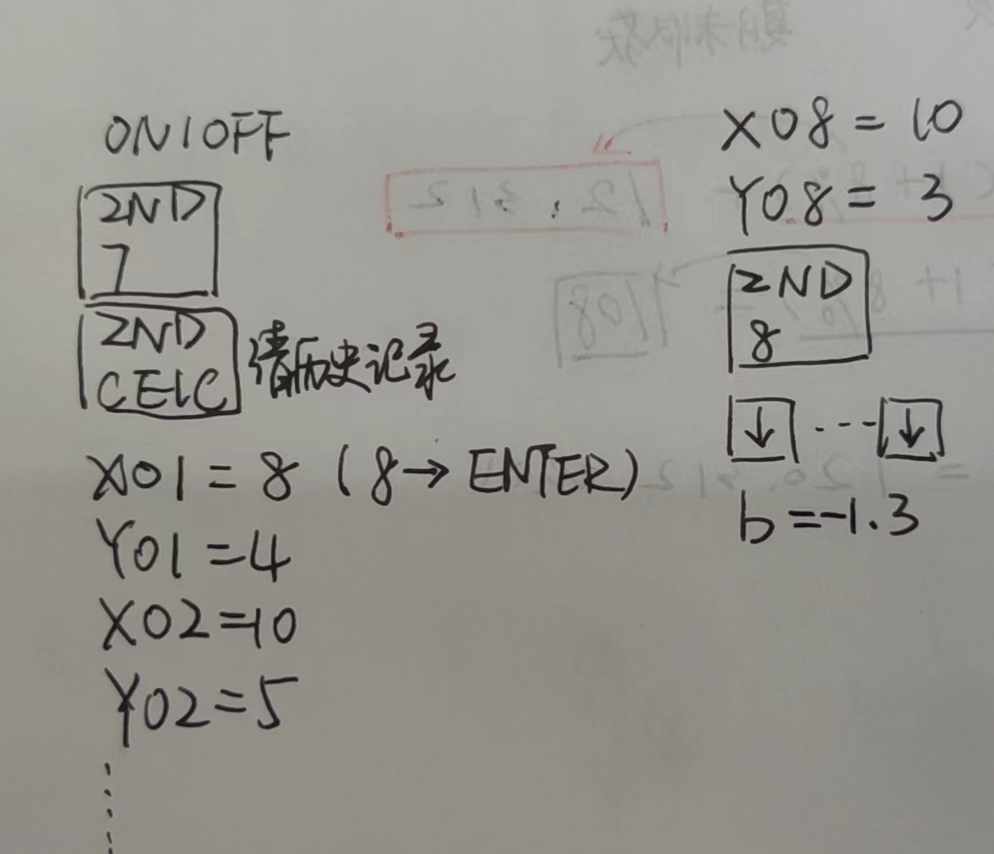 ON1OFF
2ND
7
2ND
CE1C 清历史记录
X01=8 (8→ENTER)
Y01=4
X02=10
Y02=5
X08=10
Y08=3
2ND
8
↓ ... ↓
b=-1.3